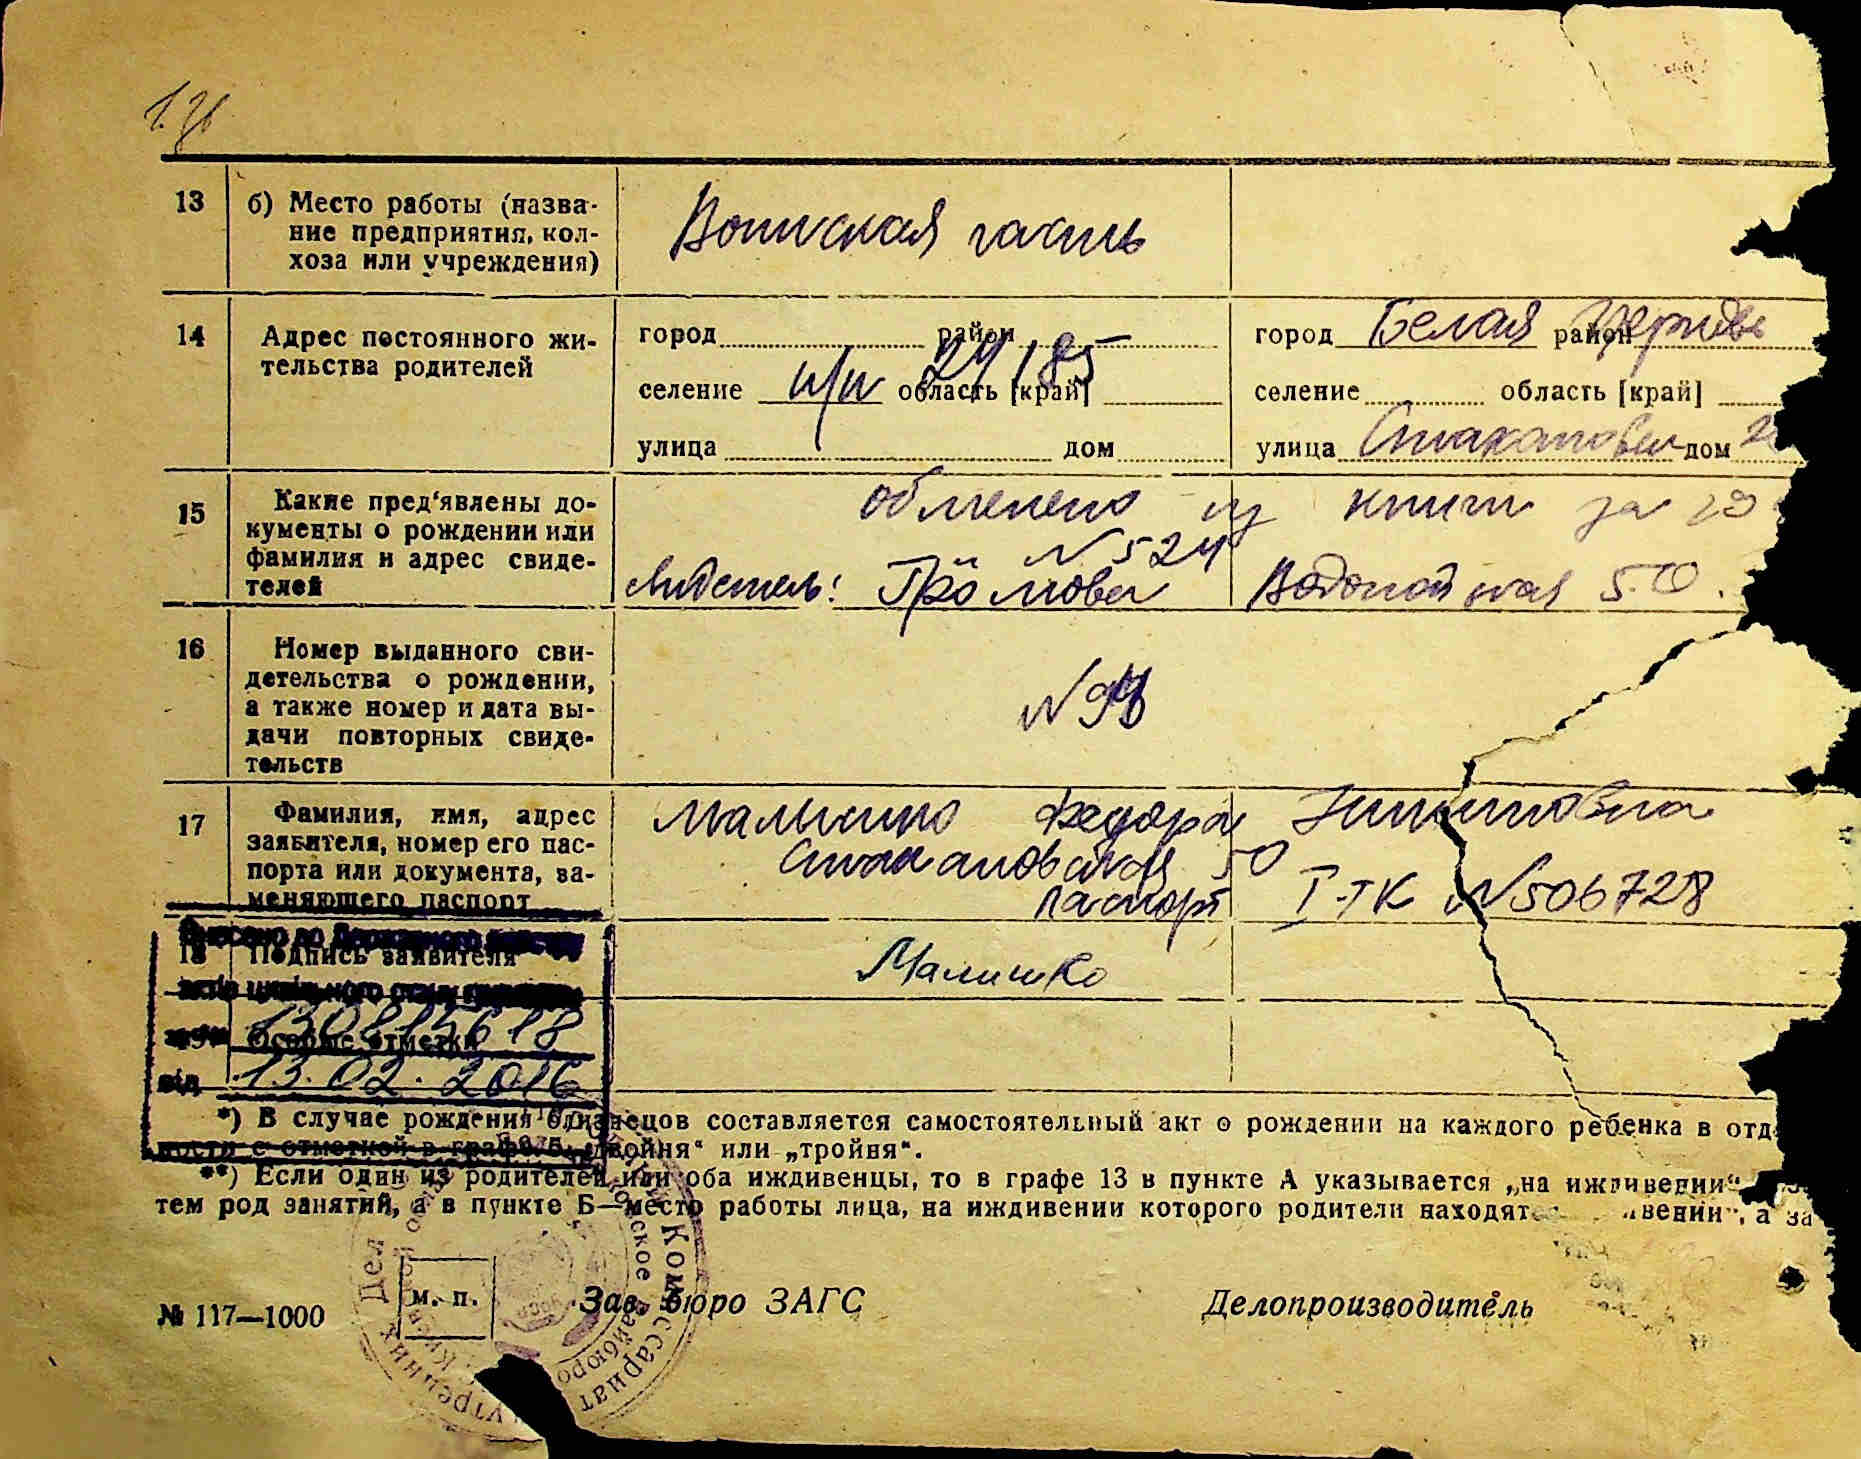 13 б) Место работы (назва-
ние предприятия, кол-
хоза или учреждения)
Воинская часть
14 Адрес постоянного жи-
тельства родителей
город район
селение п/п 24185 область [край]
улица дом
город Белая Церковь район
селение область [край]
улица дом
15 Какие пред'явлены до-
кументы о рождении или
фамилия и адрес свиде-
телей
обменено из книги за 19
N 524
Громова Водопойная 50.
16 Номер выданного сви-
детельства о рождении,
а также номер и дата вы-
дачи повторных свиде-
тельств
17 Фамилия, имя, адрес
заявителя, номер его пас-
порта или документа, за-
меняющего паспорт
Малишко Федора
Стахановская 50
паспорт I-ТК N 506728
18 Подпись заявителя
Малишко
Внесено до Державного реєстру
актів цивільного стану громадян
19 Особые отметки
за № 130815618
від 13.02.2016
*) В случае рождения близнецов составляется самостоятельный акт о рождении на каждого ребенка в отд
ности с отметкой в графе 5 „двойня“ или „тройня“.
**) Если один из родителей или оба иждивенцы, то в графе 13 в пункте А указывается „на иждивении“
тем род занятий, а в пункте Б—место работы лица, на иждивении которого родители находят
М. П.
Зав. бюро ЗАГС
Делопроизводитель
№ 117—1000
Комиссариат
Внутренних Дел
райбюро